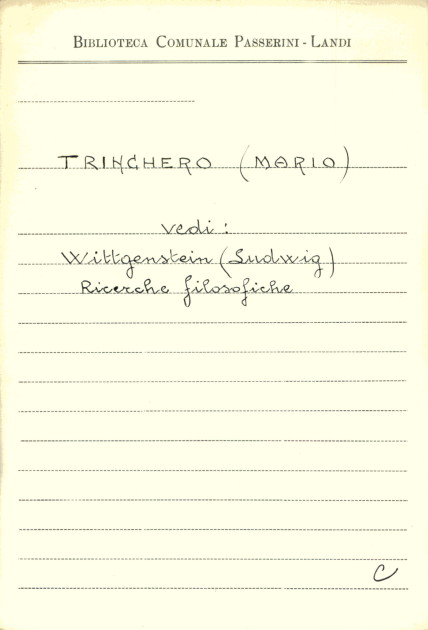 BIBLIOTECA COMUNALE PASSERINI-LANDI
TRINCHERO (MARIO)
vedi:
Wittgenstein (Ludwig)
Ricerche filosofiche
C